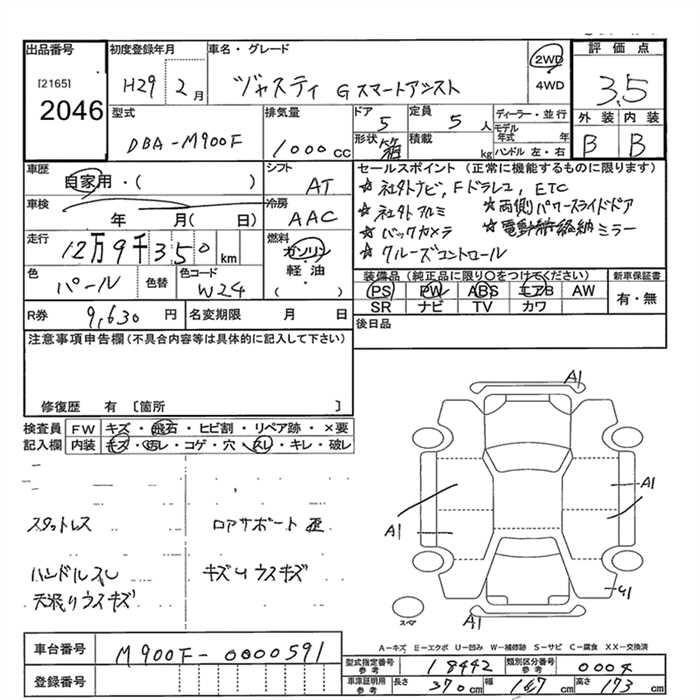 出品番号
[2165]
2046
初度登録年月
H29年 2月
車名・グレード
ジャスティ G スマートアシスト
2WD
4WD
評価点
3.5
外装 内装
B B
型式
DBA-M900F
排気量
1000cc
ドア
5
定員
5人
形状
箱
積載
kg
ディーラー・並行
モデル年式 年
ハンドル 左・右
車歴
自家用・( )
シフト
AT
車検
年 月( 日)
冷房
AAC
走行
12万9千350km
燃料
ガソリン
軽油
( )
色
パール
色替
色コード
W24
R券
9,630円
名変期限 月 日
セールスポイント(正常に機能するものに限ります)
☆社外ナビ,Fドラレコ,ETC
☆社外アルミ ☆両側パワースライドドア
☆バックカメラ ☆電動格納ミラー
☆クルーズコントロール
装備品(純正品に限り○をつけてください)
PS PW ABS エアB AW
SR ナビ TV カワ
新車保証書
有・無
後日品
注意事項申告欄(不具合内容等は具体的に記入して下さい)
修復歴 有〔箇所 〕
検査員記入欄
FW キズ・飛石・ヒビ割・リペア跡・×要
内装 キズ・汚レ・コゲ・穴・スレ・キレ・破レ
スタットレス ロアサポート歪
ハンドルスレ キズuウスキズ
天張りウスキズ
A1
A1
A1
A1
A1
スペア
A-キズ E-エクボ U-凹み W-補修跡 S-サビ C-腐食 XX-交換済
車台番号
M900F-0000591
登録番号
型式指定番号参考
18442
類別区分番号参考
0004
車庫証明用参考
長さ 370cm 幅 167cm 高さ 173cm